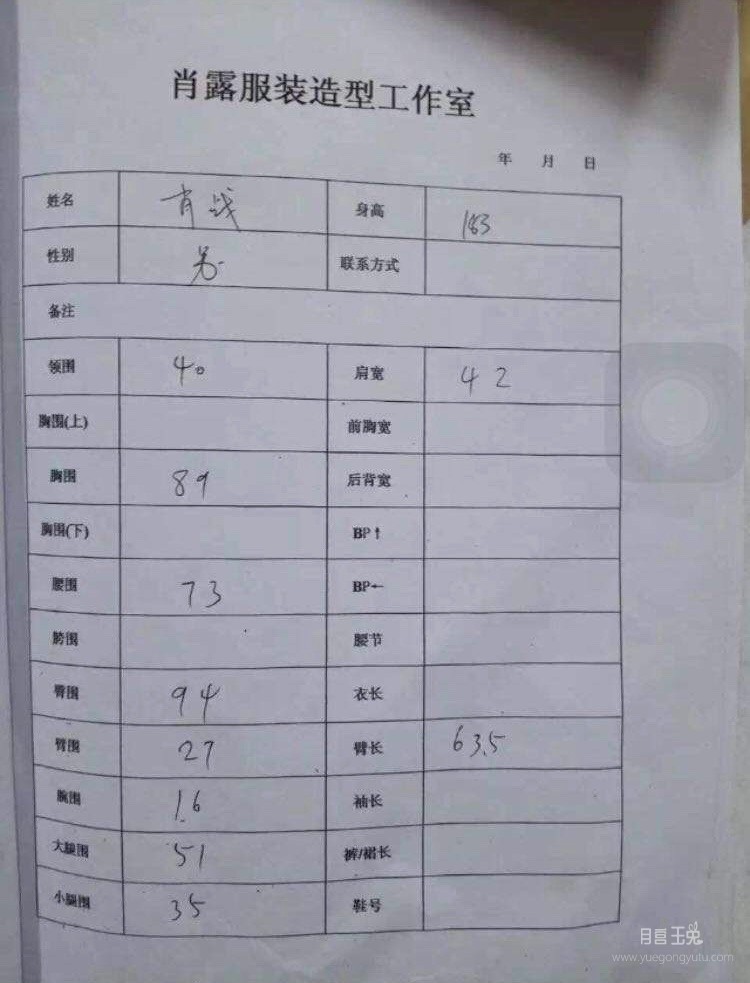 肖露服装造型工作室
年 月 日
姓名 肖战 身高 183
性别 男 联系方式
备注
领围 40 肩宽 42
胸围(上) 前胸宽
胸围 89 后背宽
胸围(下) BP↑
腰围 73 BP←
胯围 腰节
臀围 94 衣长
臂围 27 臂长 63.5
腕围 16 袖长
大腿围 51 裤/裙长
小腿围 35 鞋号
月宫玉兔
www.yuegongyutu.com